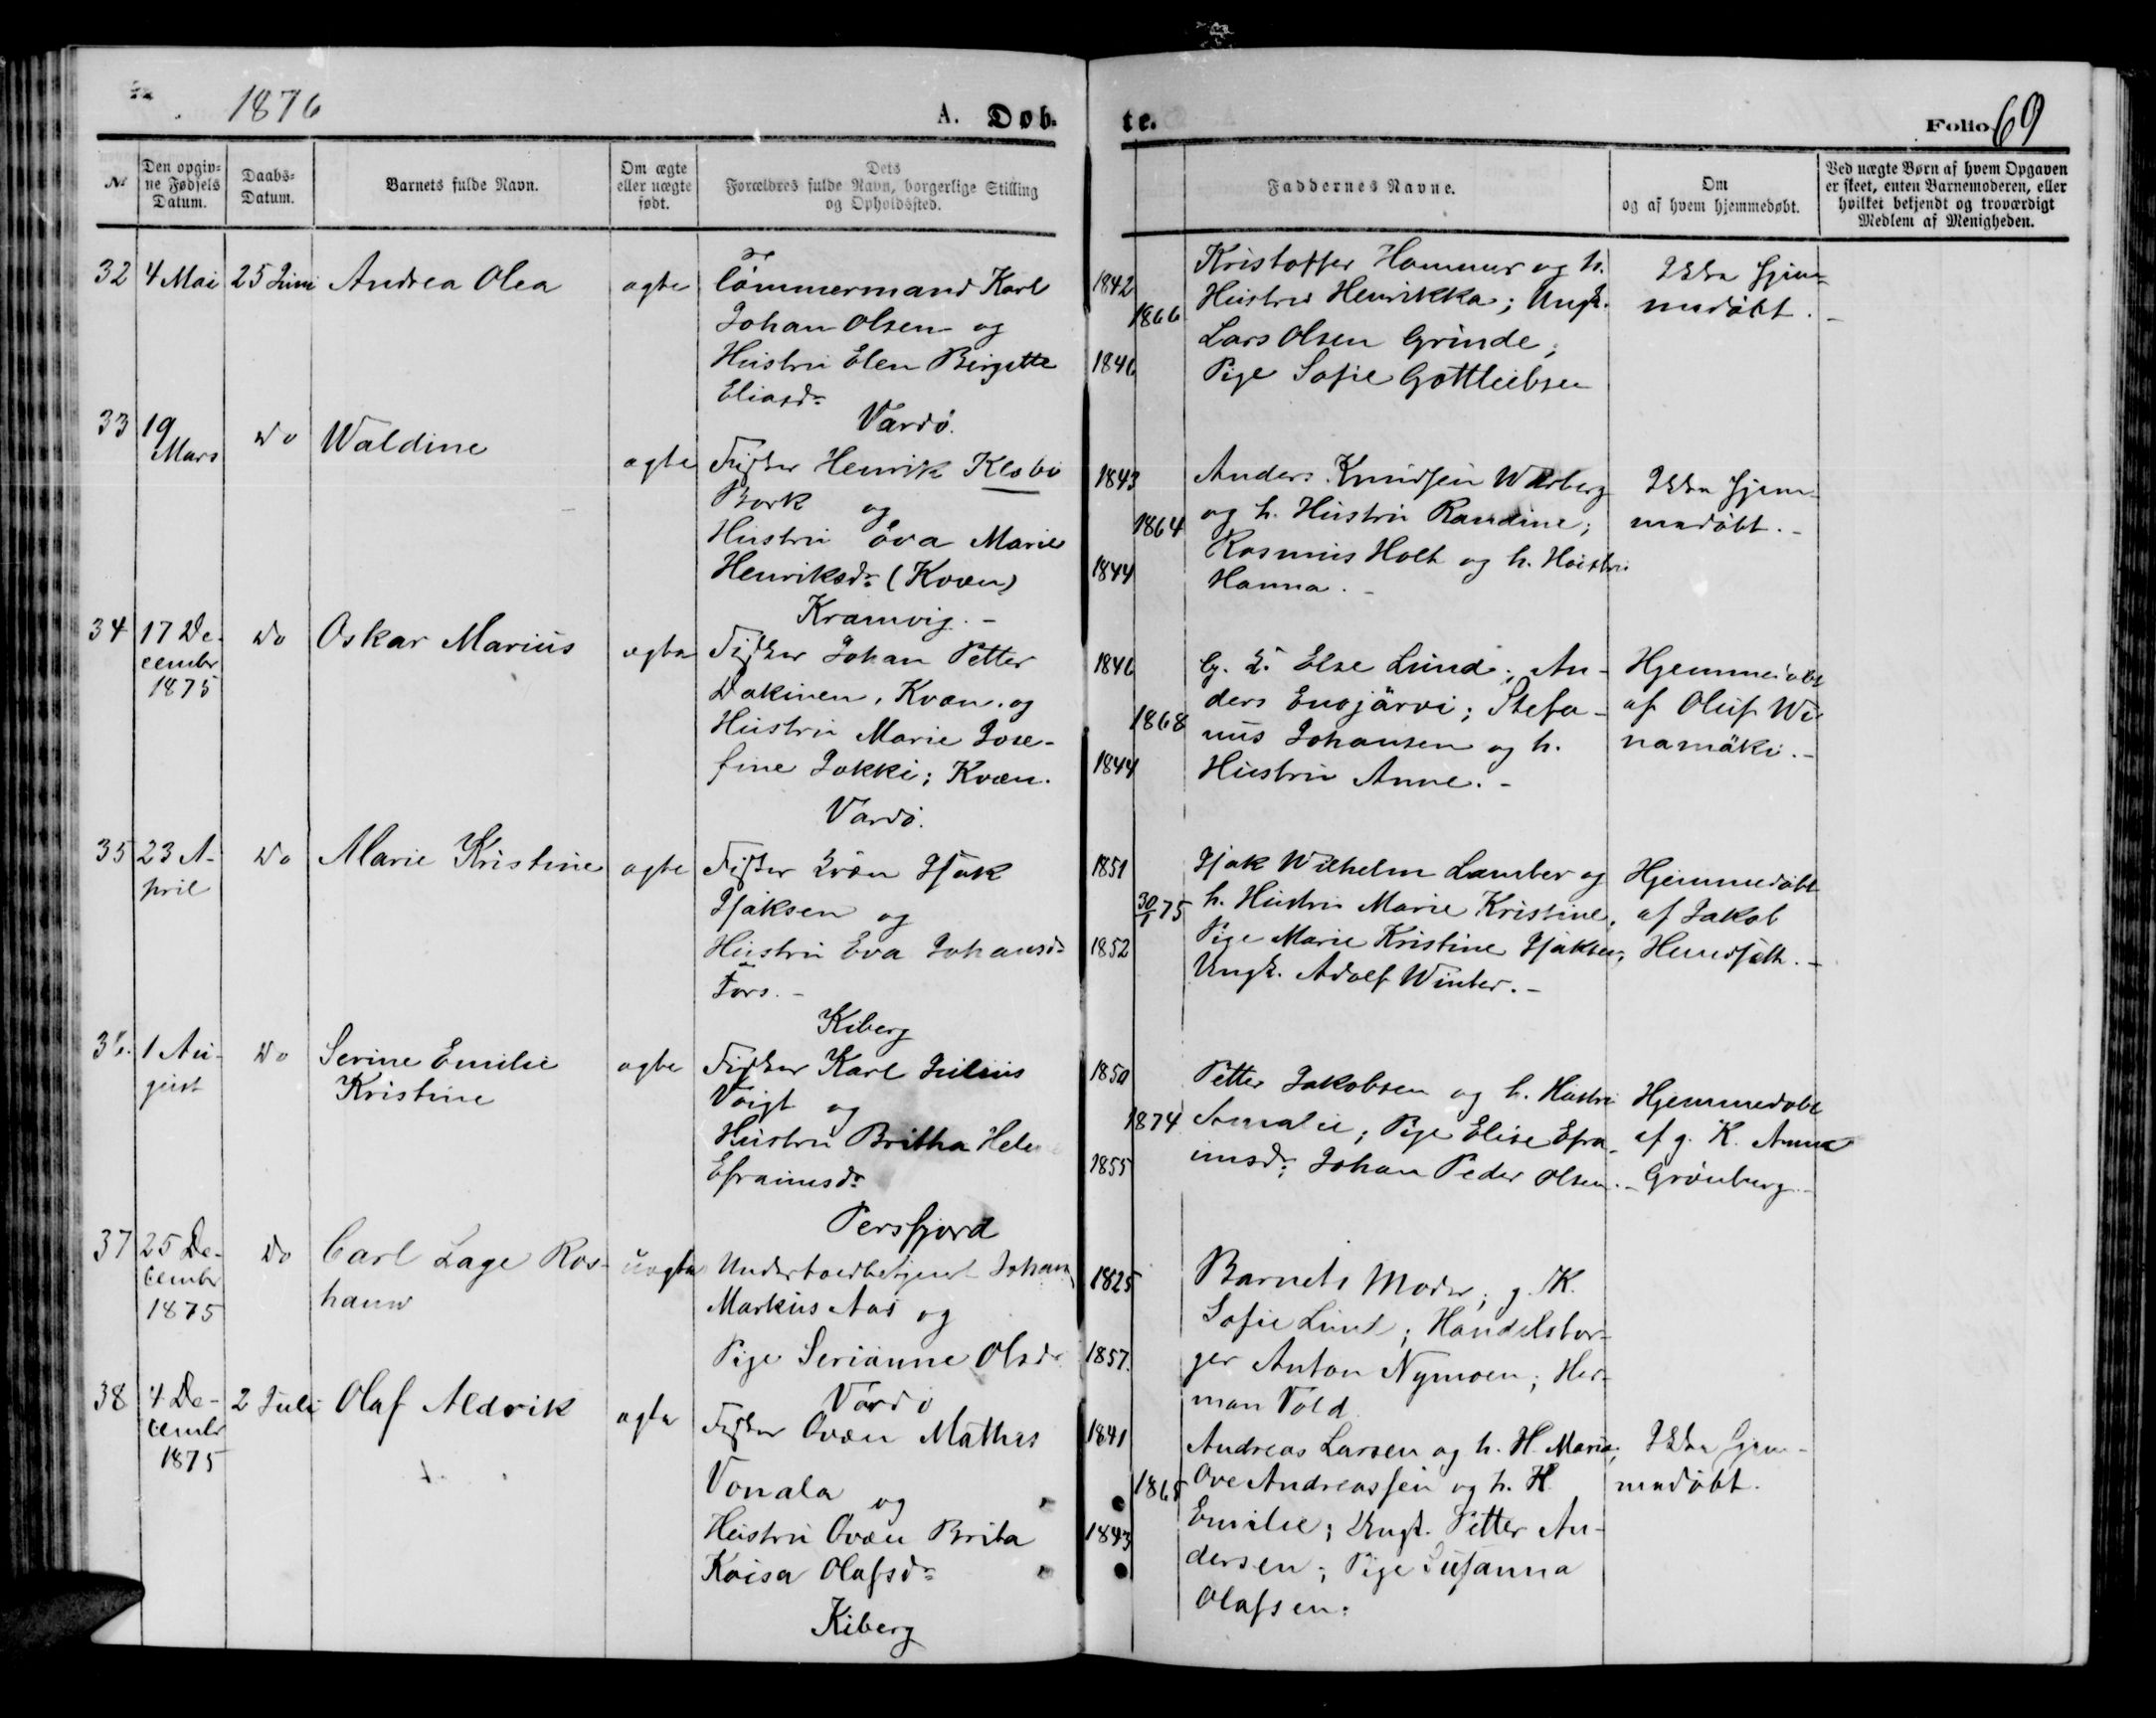 1876
A. Døb-
te.
Folio 69
№
Den opgiv-
ne Fødsels
Datum.
Daabs-
Datum.
Barnets fulde Navn.
Om ægte
eller uægte
født.
Dets
Forældres fulde Navn, borgerlige Stilling
og Opholdssted.
Faddernes Navne.
Om
og af hvem hjemmedøbt.
Ved uægte Børn af hvem Opgaven
er skeet, enten Barnemoderen, eller
hvilket bekjendt og troværdigt
Medlem af Menigheden.
32 4 Mai 25 Juni Andrea Olea ægte Tømmermand Karl
Johan Olsen og
Hustru Elen Birgitte
Eliasdr
Vardø.
1842
1866
1846
Kristoffer Hammer og h.
Hustru Henrikka; Ungk.
Lars Olsen Grinde;
Pige Sofie Gottliebsen
Ikke hjem-
medøbt.-
33 19 Mars do Waldine ægte Fisker Henrik
Bork og
Hustru Eva Marie
Henriksdr (Kvæn)
Kramvig.-
1843
1864
1844
Anders Knudsen Warberg
og h. Hustru Randine;
Rasmus Holt og h. Hustru
Hanna.-
Ikke hjem-
medøbt.-
34 17 De-
cembr
1875
do Oskar Marius ægte Fisker Johan Petter
Dakinen, Kvæn. og
Hustru Marie Jose-
fine Jokki; Kvæn.
Vardø.
1846
1868
1844
Else Lund; An-
ders Enojärvi; Stefa-
nus Johansen og h.
Hustru Anne.-
Hjemmedøbt
af Oluf Wi
namäki.-
35 23 A-
pril
do Marie Kristine ægte Fisker Kvæn Isak
Isaksen og
Hustru Eva Johansdr
Fors.-
Kiberg
1851
30/1 75
1852
Isak Wilhelm Lamber og
h. Hustru Marie Kristine,
Pige Marie Kristine Isaksen;
Ungk. Adolf Winter.-
Hjemmedøbt
af Jakob
36. 1 Au-
gust
do Serine Emilie
Kristine
ægte Fisker Karl Julius
Voigt og
Hustru Britha Hele
Efraimsdr
Persfjord
1850
1874
1855
Petter Jakobsen og h. Hustru
Amalie; Pige Elise Efra-
imsdr; Johan Peder Olsen.-
Hjemmedøbt
af g. K. Anna
Grönberg-
37 25 De-
cembr
1875
do Carl Lage Ros-
hauw
uægte Undertoldbetjent Johan
Markus Aas og
Pige Serianne Olsdr
Vardø
1825
1857.
Barnets Moder; g. K.
Sofie Lind; Handelsbor-
ger Anton Nymoen; Her-
man Vold
38 4 De-
cembr
1875
2 Juli Olaf Aldrik ægte Fisker Qvæn Mathis
Vonala og
Hustru Qvæn Brita
Kaisa Olafsdr
Kiberg
1841
1865
1843
Andreas Larsen og h. H. Maria;
Ove Andreassen og h. H.
Emilie; Ungk. Petter An-
dersen; Pige Susanna
Olafsen.
Ikke hjem-
medøbt.